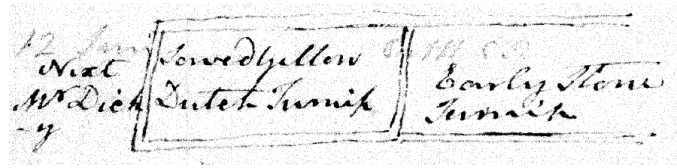 12 Jun
Next
Mr Dick
-y
Sowed yellow
Dutch Turnip
Early Stone
Turnip